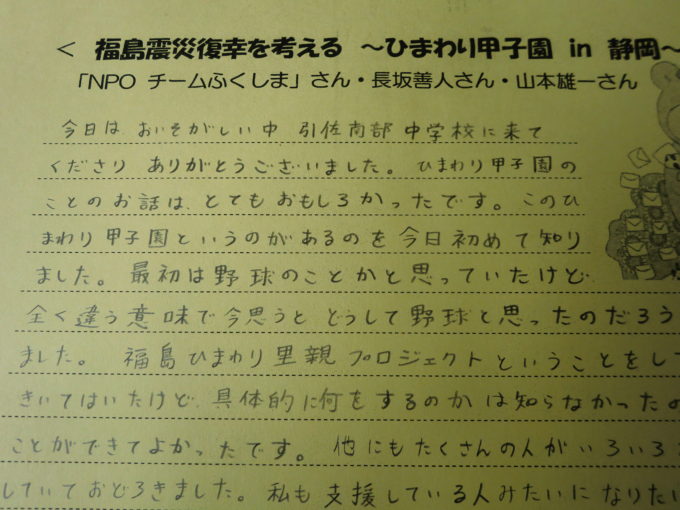 < 福島震災復幸を考える ～ひまわり甲子園 in 静岡～
「NPO チームふくしま」さん・長坂善人さん・山本雄一さん
今日は、おいそがしい中 引佐南部中学校に来て
くださり ありがとうございました。ひまわり甲子園の
ことのお話は、とてもおもしろかったです。このひ
まわり甲子園というのがあるのを今日初めて知り
ました。最初は野球のことかと思っていたけど、
全く違う意味で今思うと どうして野球と思ったのだろう
ました。 福島ひまわり里親プロジェクトということをして
きいてはいたけど、具体的に何をするのかは知らなかったの
ことができてよかったです。他にもたくさんの人がいろいろ
していておどろきました。私も支援している人みたいになりたい